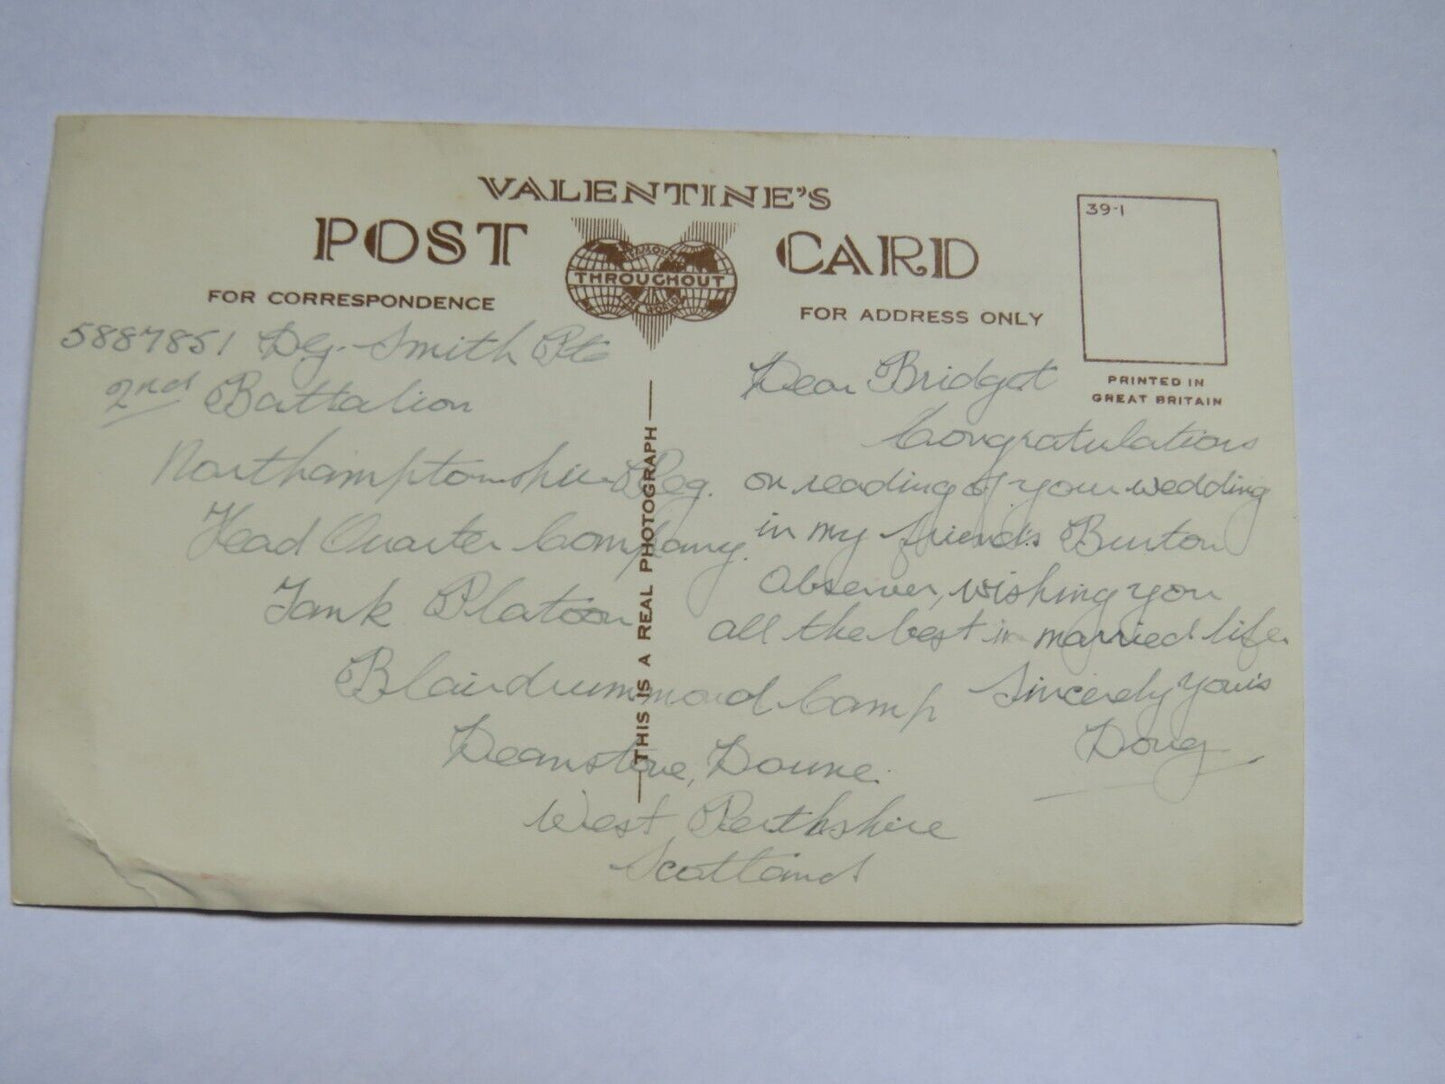 VALENTINE'S
POST CARD
FAMOUS
THROUGHOUT
THE WORLD
FOR CORRESPONDENCE
FOR ADDRESS ONLY
39-1
PRINTED IN
GREAT BRITAIN
THIS IS A REAL PHOTOGRAPH
5887851 Dg. Smith Pte
2nd Battalion
Northamptonshire Reg.
Head Quarter Company.
Tank Platoon
Blairdrummond Camp
Deanstone, Doune.
West Perthshire
Scotland
Dear Bridget
Congratulations
on reading of your wedding
in my friends Burton
Observer, wishing you
all the best in married life.
Sincerely Yours
Doug